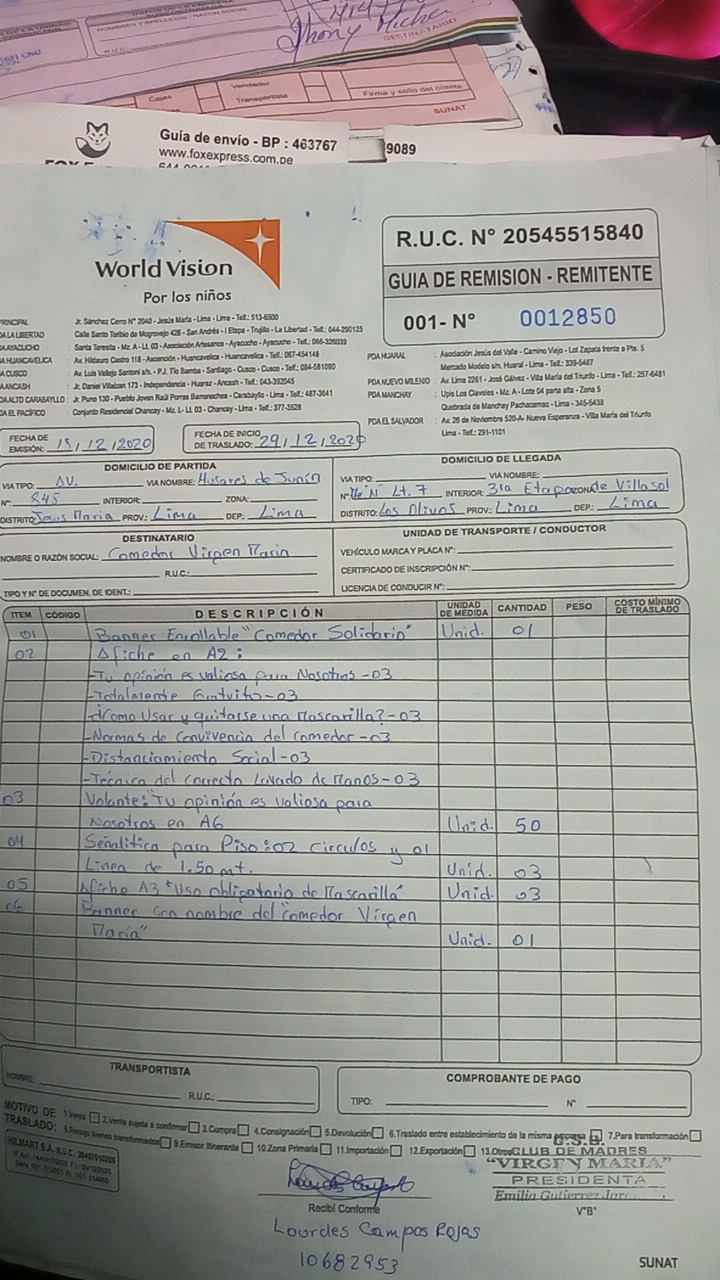 Jhony Miche
DESTINATARIO
Cajas
Vendedor
Transportista
Firma y sello del cliente
SUNAT
Guía de envío - BP : 463767
9089
www.foxexpress.com.pe
World Vision
Por los niños
R.U.C. N° 20545515840
GUIA DE REMISION - REMITENTE
001- N° 0012850
PRINCIPAL : Jr. Sánchez Cerro N° 2040 - Jesús María - Lima - Lima - Telf.: 513-6500
DA LA LIBERTAD : Calle Santo Toribio de Mogrovejo 426 - San Andrés - I Etapa - Trujillo - La Libertad - Telf.: 044-290125
DA AYACUCHO : Santa Teresita - Mz. A - Lt. 03 - Asociación Artesanos - Ayacucho - Ayacucho - Telf.: 066-326039
DA HUANCAVELICA : Av. Hildauro Castro 118 - Ascención - Huancavelica - Huancavelica - Telf.: 067-454148
DA CUSCO : Av. Luis Vallejo Santoni s/n. - P.J. Tio Bamba - Santiago - Cusco - Cusco - Telf.: 084-581090
DA ANCASH : Jr. Daniel Villaizan 173 - Independencia - Huaraz - Ancash - Telf.: 043-392945
DA ALTO CARABAYLLO : Jr. Puno 130 - Pueblo Joven Raúl Porras Barrenechea - Carabayllo - Lima - Telf.: 487-3641
DA EL PACÍFICO : Conjunto Residencial Chancay - Mz. L- Lt. 03 - Chancay - Lima - Telf.: 377-3528
PDA HUARAL : Asociación Jesús del Valle - Camino Viejo - Lot Zapata frente a Pte. 5
Mercado Modelo s/n. Huaral - Lima - Telf.: 339-5487
PDA NUEVO MILENIO : Av. Lima 2261 - José Gálvez - Villa María del Triunfo - Lima - Telf.: 257-6481
PDA MANCHAY : Upis Los Claveles - Mz. A - Lote 04 parte alta - Zona 5
Quebrada de Manchay Pachacamac - Lima - 345-5438
PDA EL SALVADOR : Av. 26 de Noviembre 520-A- Nueva Esperanza - Villa María del Triunfo
Lima - Telf.: 291-1101
FECHA DE EMISIÓN: 18/12/2020
FECHA DE INICIO DE TRASLADO: 29/12/2020
DOMICILIO DE PARTIDA
VIA TIPO: AV. VIA NOMBRE: Husares de Junín
N°: 845 INTERIOR: ZONA:
DISTRITO: Jesus Maria PROV.: Lima DEP.: Lima
DOMICILIO DE LLEGADA
VIA TIPO: VIA NOMBRE:
N° Mz N Lt. 7 INTERIOR: 3ra Etapa ZONA: de Villasol
DISTRITO: Los Olivos PROV.: Lima DEP.: Lima
DESTINATARIO
NOMBRE O RAZÓN SOCIAL: Comedor Virgen Maria
R.U.C.:
TIPO Y N° DE DOCUMEN. DE IDENT.:
UNIDAD DE TRANSPORTE / CONDUCTOR
VEHÍCULO MARCA Y PLACA N°:
CERTIFICADO DE INSCRIPCIÓN N°:
LICENCIA DE CONDUCIR N°:
ITEM CÓDIGO DESCRIPCIÓN UNIDAD DE MEDIDA CANTIDAD PESO COSTO MÍNIMO DE TRASLADO
01 Banner Enrollable "Comedor Solidario" Unid. 01
02 Afiche en A2:
-Tu opinión es valiosa para Nosotros -03
-Totalmente Gratuito -03
-¿Como Usar y quitarse una Mascarilla? -03
-Normas de Convivencia del comedor -03
-Distanciamiento Social -03
-Técnica del correcto lavado de Manos -03
03 Volante: "Tu opinión es valiosa para
Nosotros en A6 Unid. 50
04 Señalitica para Piso: 02 circulos y 01
Linea de 1.50 mt. Unid. 03
05 Afiche A3 "Uso obligatorio de Mascarilla" Unid. 03
06 Banner con nombre del "Comedor Virgen
María" Unid. 01
TRANSPORTISTA
NOMBRE:
R.U.C.:
COMPROBANTE DE PAGO
TIPO: N°
MOTIVO DE TRASLADO: 1.Venta 2.Venta sujeta a confirmar 3.Compra 4.Consignación 5.Devolución 6.Traslado entre establecimiento de la misma empresa 7.Para transformación
8.Recojo bienes transformados 9.Emisor Itinerante 10.Zona Primaria 11.Importación 12.Exportación 13.Otros
CLUB DE MADRES
"VIRGEN MARIA"
PRESIDENTA
Emilia Gutierrez
V°B°
Recibí Conforme
Lourdes Campos Rojas
10682953
SUNAT